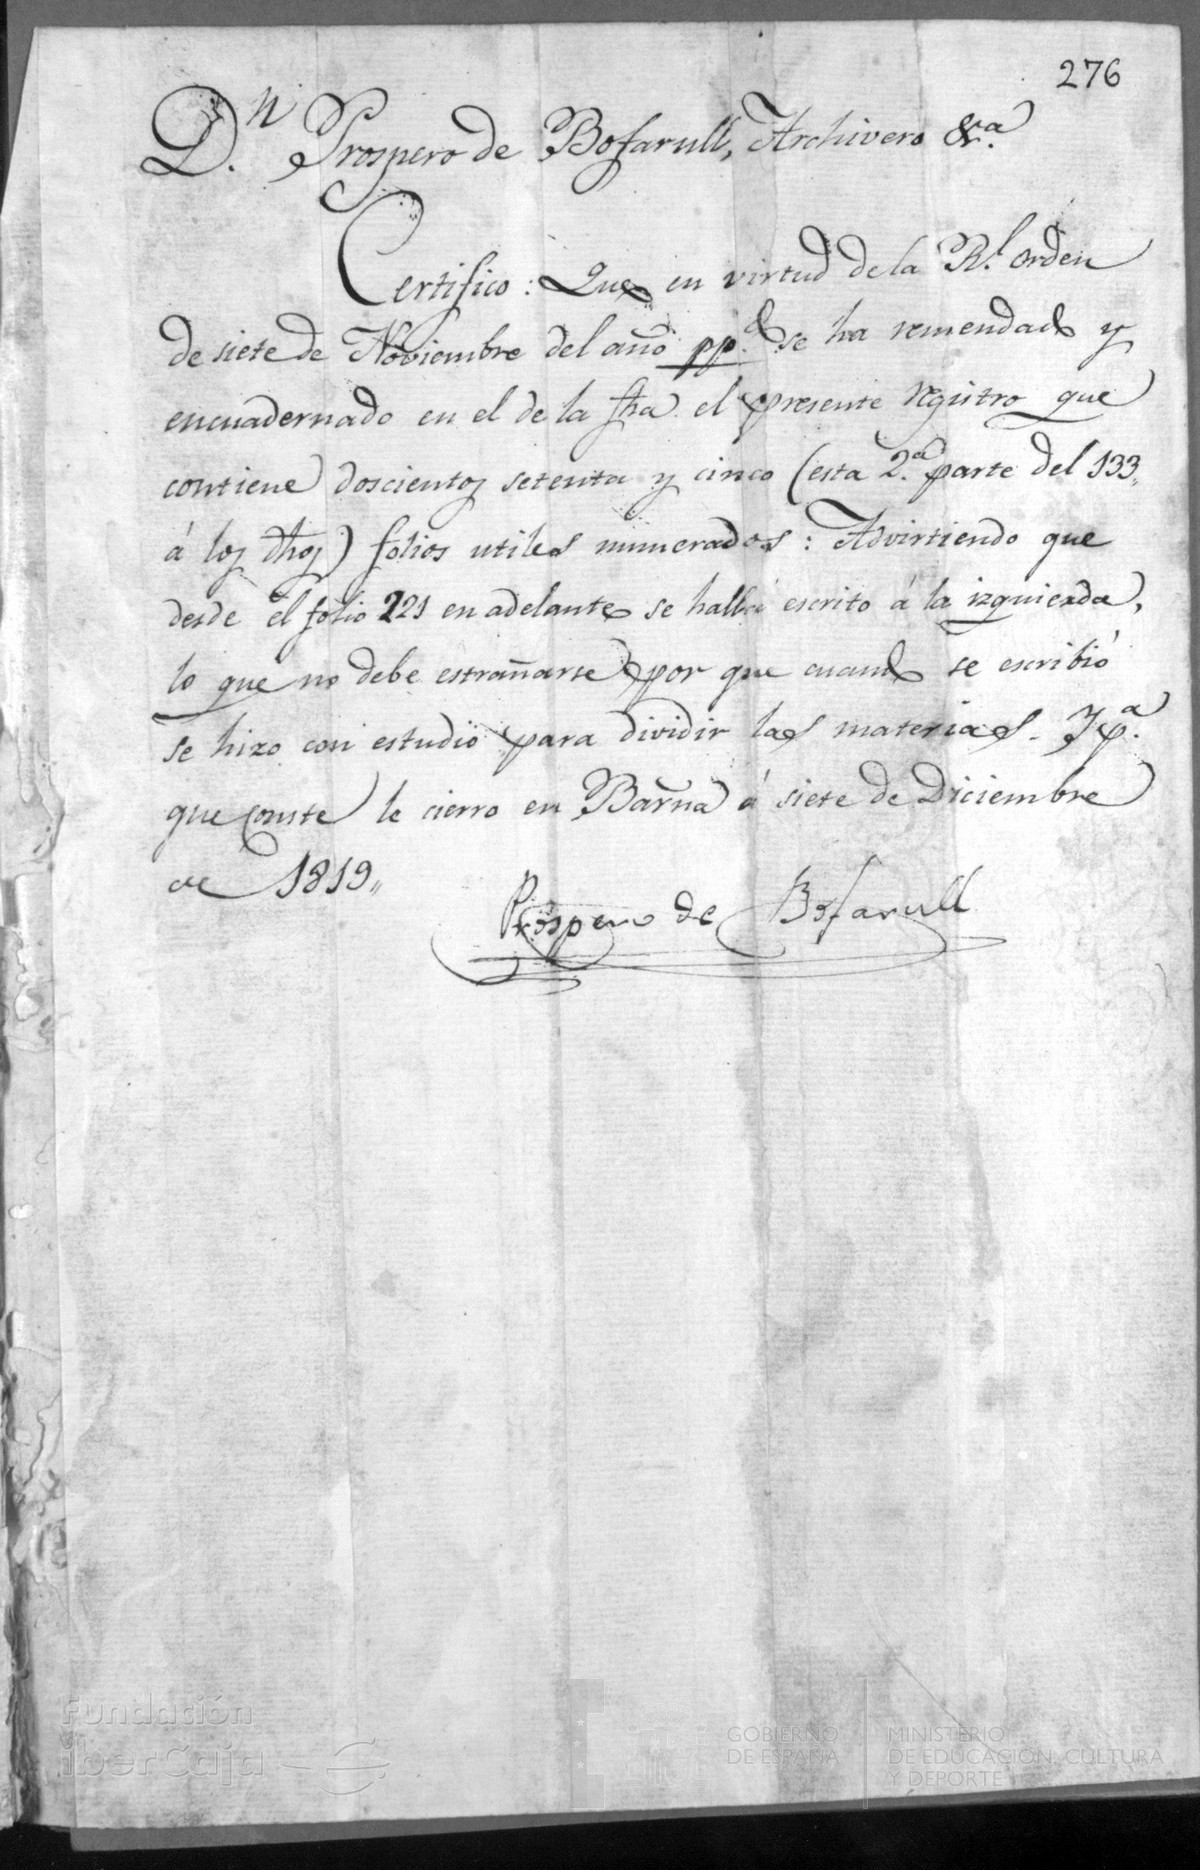 276
D.n Prospero de Bofarull, Archivero &.a
Certifico: Que en virtud de la R.l orden
de siete de Noviembre del año pp.do se ha remendado y
encuadernado en el de la fha. el presente registro que
contiene doscientos setenta y cinco (esta 2.a parte del 133
á los dhos) folios utiles numerados: Advirtiendo que
desde el folio 221 en adelante se halla escrito á la izquierda,
lo que no debe estrañarse por que cuando se escribió
se hizo con estudio para dividir las materias. Y p.a
que conste le cierro en Barna á siete de Diciembre
de 1819.,
Prospero de Bofarull
Fundación
iberCaja
GOBIERNO
DE ESPAÑA
MINISTERIO
DE EDUCACIÓN, CULTURA
Y DEPORTE